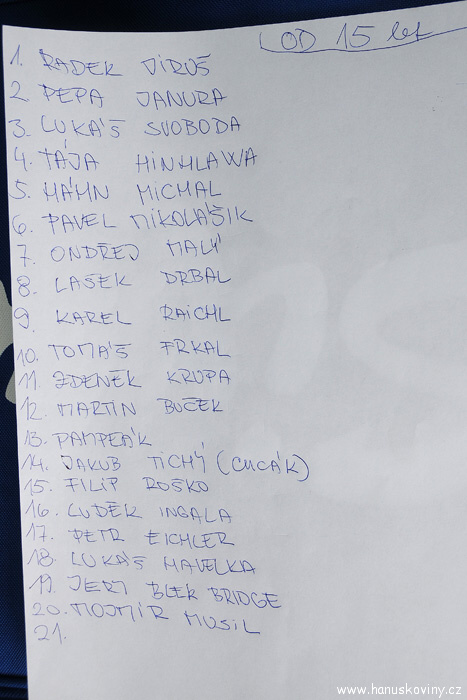 OD 15 let
1. RADEK JIRUŠ
2. PEPA JANURA
3. LUKÁŠ SVOBODA
4. TÁJA HINHLAWA
5. HÁHN MICHAL
6. PAVEL MIKOLÁŠIK
7. ONDŘEJ MALÝ
8. LAŠEK DRBAL
9. KAREL RAICHL
10. TOMÁŠ FRKAL
11. ZDENĚK KRUPA
12. MARTIN BUČEK
13. PAMPEÁK
14. JAKUB TICHÝ (CUCÁK)
15. FILIP ROŠKO
16. LUDĚK INGALA
17. PETR EICHLER
18. LUKÁŠ HAVELKA
19. JERY BLEK BRIDGE
20. MOJMÍR MUSIL
21.
www.hanuskoviny.cz